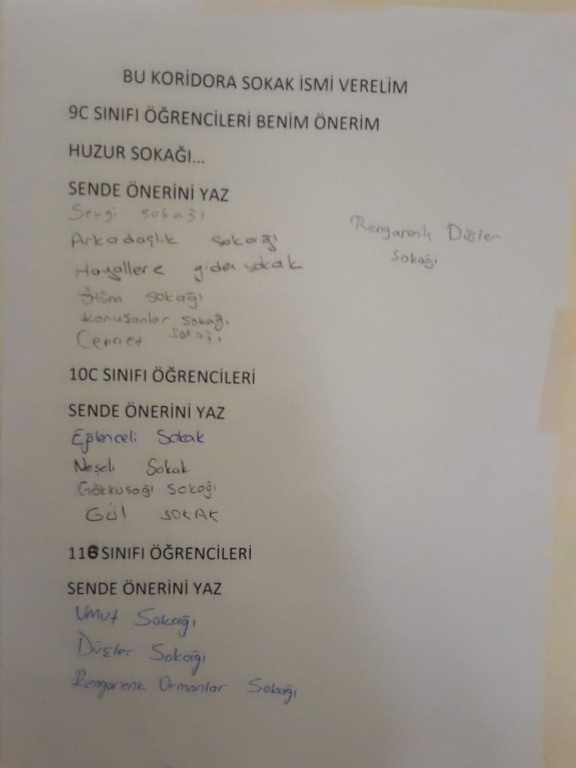 BU KORİDORA SOKAK İSMİ VERELİM
9C SINIFI ÖĞRENCİLERİ BENİM ÖNERİM
HUZUR SOKAĞI...
SENDE ÖNERİNİ YAZ
Sevgi sokağı
Arkadaşlık sokağı
Hayallere giden sokak
Ölüm sokağı
Konuşanlar sokağı
Cennet sokağı
Rengarenk Düşler
sokağı
10C SINIFI ÖĞRENCİLERİ
SENDE ÖNERİNİ YAZ
Eğlenceli Sokak
Neşeli Sokak
Gökkuşağı sokağı
Gül SOKAK
11G SINIFI ÖĞRENCİLERİ
SENDE ÖNERİNİ YAZ
Umut Sokağı
Düşler Sokağı
Rengarenk Ormanlar Sokağı